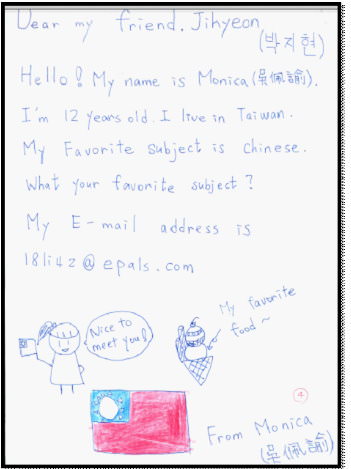 Dear my friend. Jihyeon
(박지현)
Hello! My name is Monica(吳佩諭).
I'm 12 years old. I live in Taiwan.
My Favorite subject is Chinese.
What your favorite subject?
My E-mail address is
18li42@epals.com
Nice to
meet you!
My favorite
food~
4
From Monica
(吳佩諭)